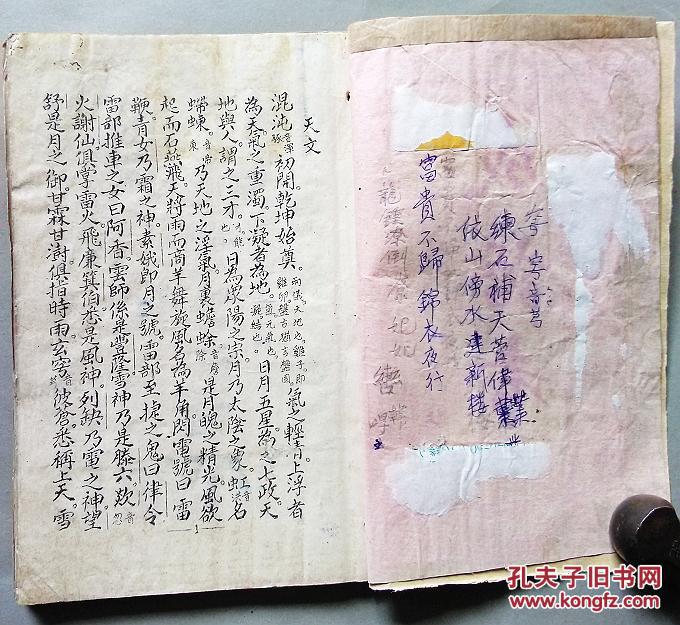 穹音芎
練石補天營偉業
依山傍水建新樓
富貴不歸錦衣夜行
天文
混沌音渾豚初開乾坤始奠。兩儀天地也雞子即雞卵盤古猶言盤固氣之輕清上浮者
為天氣之重濁下凝者為地。日月五星為之七政天
地與人謂之三才。日為眾陽之宗月乃太陰之象。虹音洪名
螮蝀音帝東乃天地之淫氣月裏蟾蜍音詹除是月魄之精光風欲
起而石燕飛天將雨而商羊舞旋風名為羊角閃電號曰雷
鞭青女乃霜之神。素娥即月之號。雷部至捷之鬼曰律令
雷部推車之女曰阿香。雲師係是豐隆雪神乃是滕六。欻音忽
火謝仙俱掌雷火飛廉箕伯悉是風神。列缺乃雷之神望
舒是月之御。甘霖甘澍俱指時雨。玄穹彼蒼悉稱上天。雪
孔夫子旧书网
www.kongfz.com